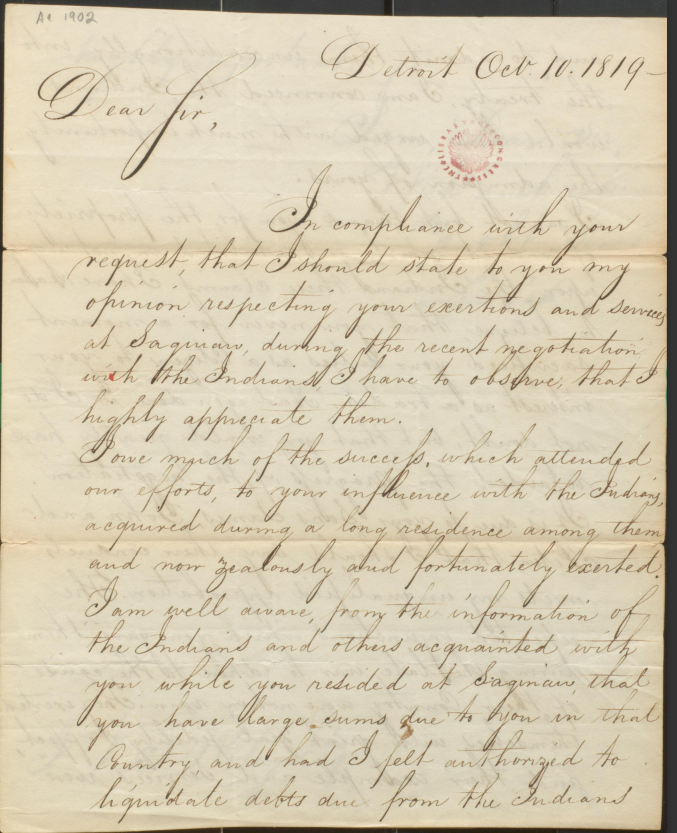 Ac 1902
Detroit Oct. 10. 1819-
Dear Sir,
In compliance with your
request, that I should state to you my
opinion respecting your exertions and services
at Saginaw, during the recent negotiation
with the Indians, I have to observe, that I
highly appreciate them.
I owe much of the success, which attended
our efforts, to your influence with the Indians,
acquired during a long residence among them
and now zealously and fortunately exerted.
I am well aware, from the information of
the Indians and others acquainted with
you while you resided at Saginaw, that
you have large sums due to you in that
Country, and had I felt authorized to
liquidate debts due from the Indians